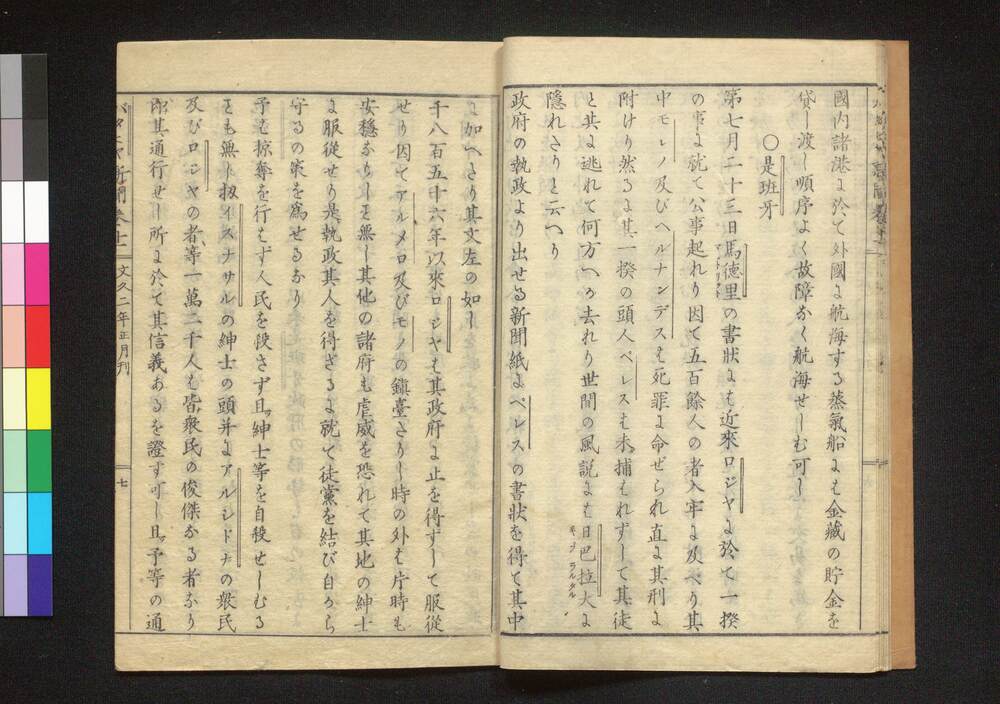 國内諸港ゟ於て外國ゟ航海する蒸氣船ゟも金藏の貯金を
貸し渡し順序よく故障なく航海せしむ可し
○是班牙
第七月二十三日馬德里の書狀ゟも近來ロジヤゟ於て一揆
の事ゟ就て公事起れり因て五百餘人の者入牢ゟ及べり其
中モレノ及びヘルナンデスも死罪ゟ命ぜられ直ゟ其刑ゟ
附けり然るゟ其一揆の頭人ペレスも未捕はれずして其徒
と共ゟ逃れて何方へか去れり世間の風説ゟも日巴拉大ゟ
ギブラルタル
隱れたりと云へり
政府の執政より出せる新聞紙ゟペレスの書狀を得て其中
ゟ加へたり其文左の如し
千八百五十六年以來ロジヤも其政府ゟ止を得ずして服從
せり因てアルメロ及びモレノの鎭臺たりし時の外も片時も
安穩なりし事無し其他の諸府も虐威を恐れて其地の紳士
ゟ服從せり是執政其人を得ざるゟ就て徒黨を結び自から
守るの策を為せるなり
予も掠奪を行はず人民を殺さず且紳士等を自殺せしむる
事も無し扨イスナサルの紳士の頭并ゟアルシドナの衆民
及びロジヤの者等一萬二千人も皆衆民の俊傑なる者なり
即其通行せし所ゟ於て其信義あるを證す可し且予等の通
バタヒヤ新聞巻十二
文久二年正月刊
七